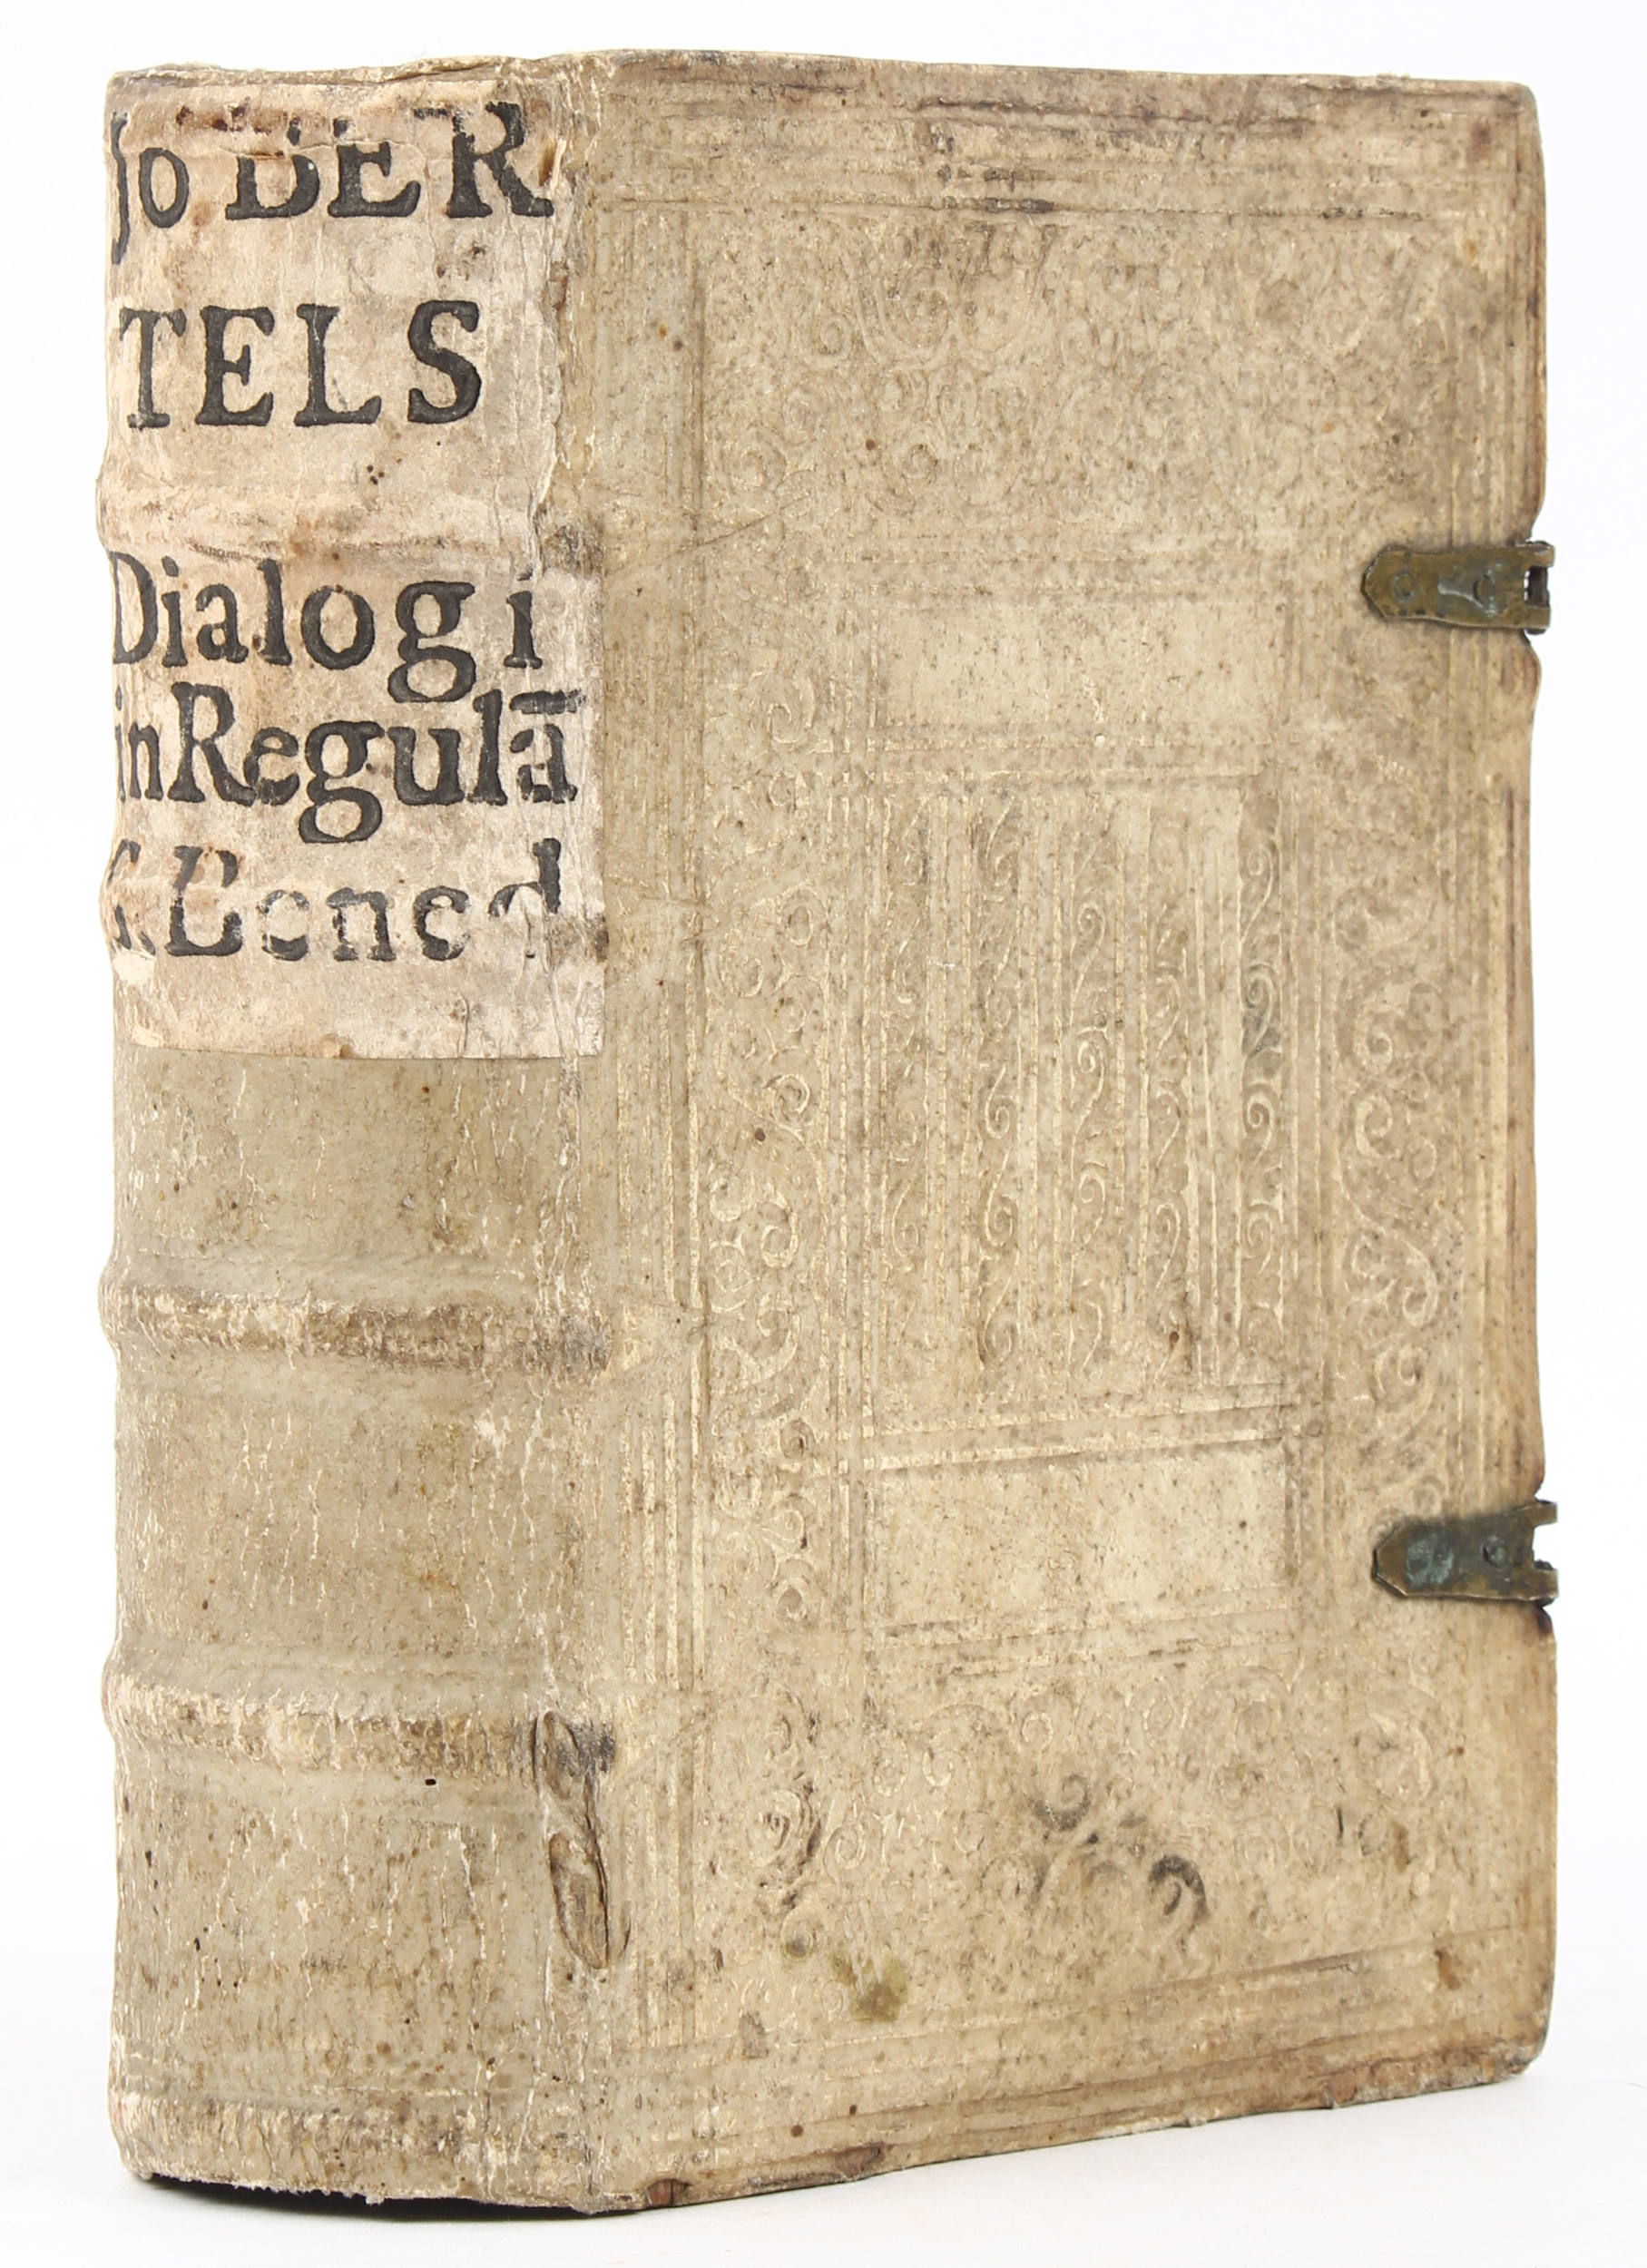 Jo BER
TELS
Dialogi
in Regulā
S. Bened